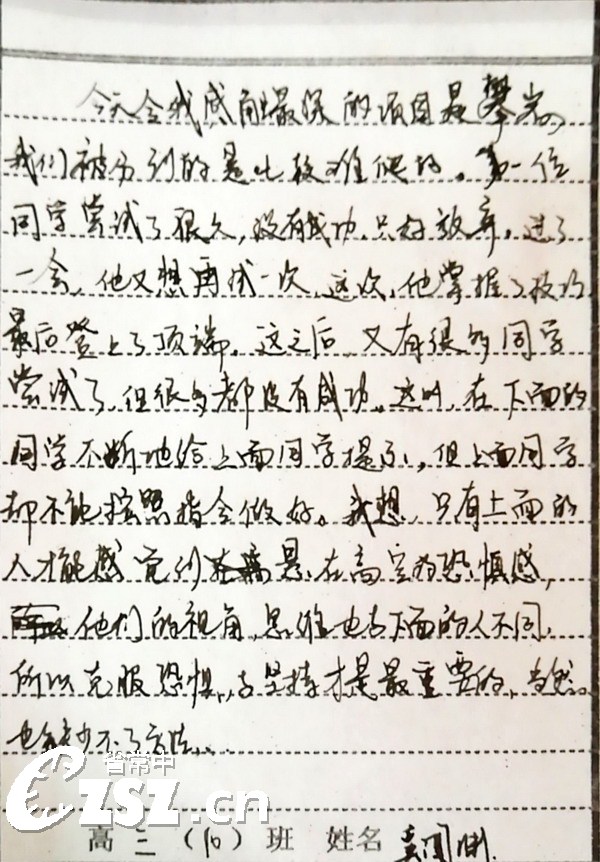 今天令我感触最深的项目是攀岩,
我们被分到的是比较难爬的。第一位
同学尝试了很久,没有成功,只好放弃。过了
一会,他又想再试一次,这次,他掌握了技巧
最后登上了顶端。这之后,又有很多同学
尝试了,但很多都没有成功。这时,在下面的
同学不断地给上面同学提示,但上面同学
却不能按照指令做好。我想,只有上面的
人才能感觉到 是在高空的恐惧感,
他们的视角,思维也与下面的人不同,
所以克服恐惧,与坚持才是最重要的,当然。
也缺少不了方法。
省常中
CZSZ.cn
高三(10)班 姓名